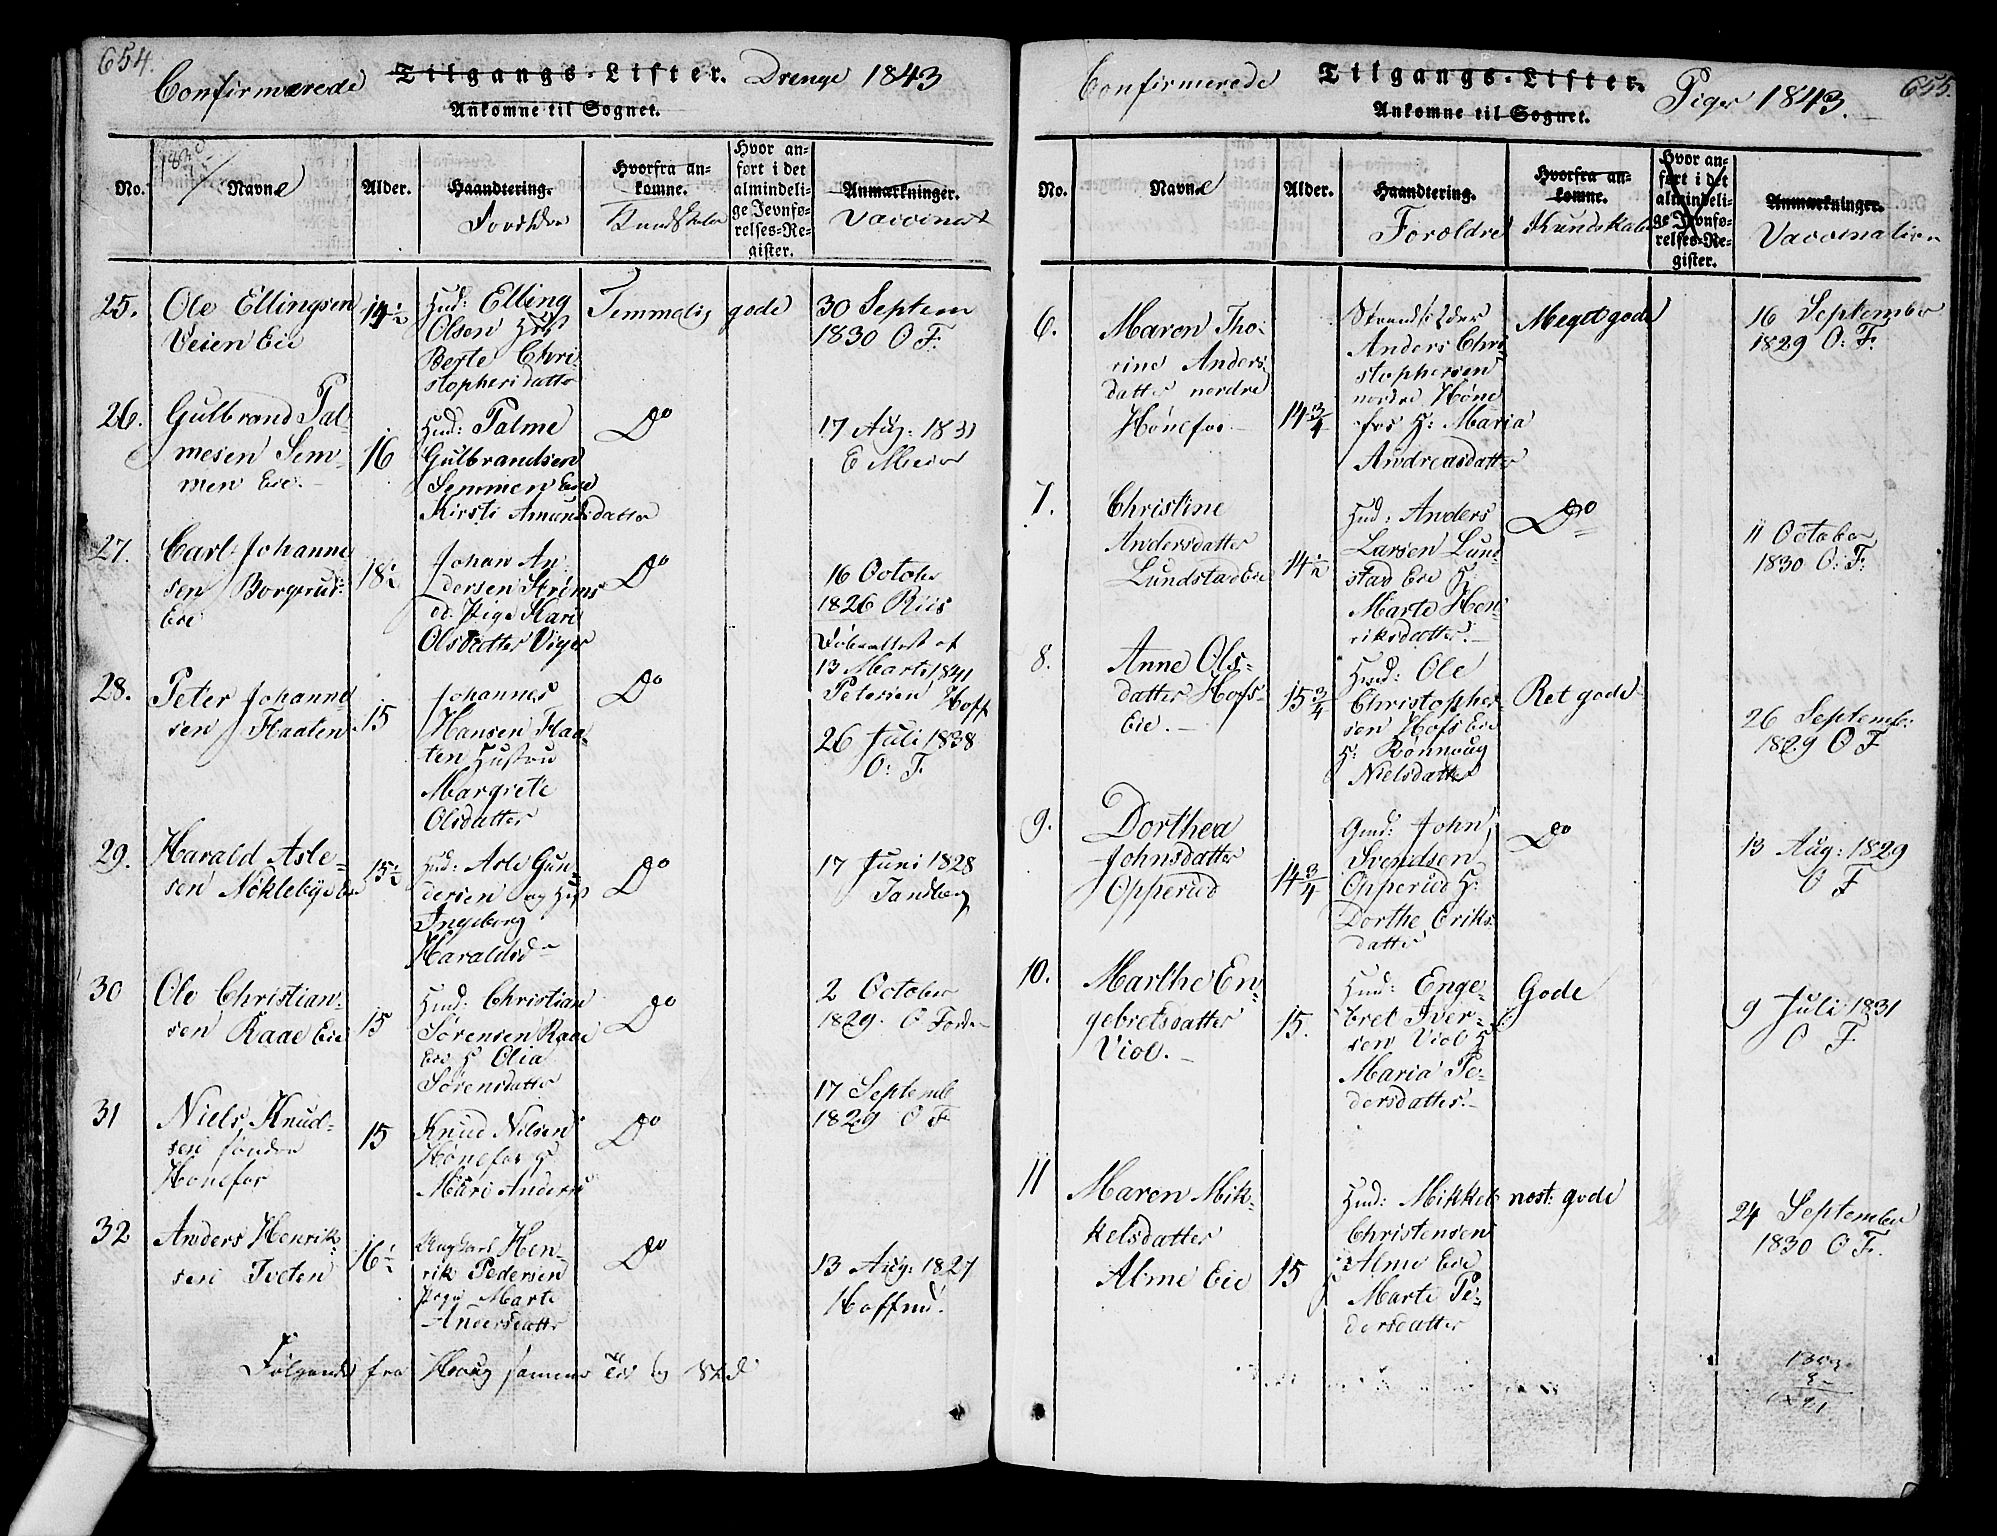 654.
Confirmerede Tilgangs-Lister. Drenge 1843
Ankomne til Sognet.
No. Navne Alder. Haandtering. Hvorfra ankomne. Hvor anført i det almindelige Jevnførelses-Register. Anmærkninger.
Forældre Kundskaber Vaccinat
25. Ole Ellingsen Veien Eie
14½
Hmd: Elling
Olsen Hust
Berte Chri-
stophersdatter
Temmelig gode
30 Septem
1830 O F.
26. Gulbrand Pal-
mesen Sem-
men Eie.
16
Hmd: Palme
Gulbrandsen
Semmen Eie
Kirsti Amundsdatter
Do
17 Aug: 1831
E Meier
27. Carl Johanne
sen Borgerud-
Eie
18½
Johan An-
dersen Strøms
Pige Kari
Olsdatter Viger
Do
16 October
1826 Riis
Døbeattest af
13 Marts 1841
Petersen Hoff
28. Peter Johanne
sen Flaaten
15
Johannes
Hansen Flaa-
ten Hustru
Margrete
Olsdatter
Do
26 Juli 1838
O: F.
29. Harald Asle-
sen Nøklebye Eie
15½
Hmd: Asle Gun-
dersen og Hust
Ingeborg
Haraldsd
Do
17 Juni 1828
Tandberg
30 Ole Christian-
sen Raae Eie
15
Hmd: Christian
Sørensen Raae
Eie H Olia
Sørensdatter
Do
2 October
1829. O
31 Niels Knud-
sen søndre
Hønefos
15
Knud Nilsen
Hønefos H
Mari Anders
Do
17 Septemb
1829 O F.
32 Anders Henrik-
sen Tveten
16½
Ungkarl Hen-
rik Pedersen
Pige Marte
Andersdatter
Do
13 Aug: 1827
Hoffmd.
Følgende fra Houg sammes Tid og Sted
655.
Confirmerede Tilgangs-Lister. Piger 1843.
Ankomne til Sognet.
No. Navne Alder. Haandtering. Hvorfra ankomne. Hvor anført i det almindelige Jevnførelses-Register. Anmærkninger.
Forældre Kundskaber Vaccination
6. Maren Tho-
rine Anders-
datter nordre
Hønefos
14¾
Strandsidder
Anders Chri-
stophersen
nordre Høne
fos H: Maria
Andreasdatter
Meget gode
16 September
1829 O: F.
7. Christine
Andersdatter
Lundstad Eie
14½
Hmd: Anders
Larsen Lund
stad Eie H:
Marte Hen-
riksdatter.
Do
11 October
1830 O: F.
8. Anne Ols-
datter Hofs-
Eie.
15¾
Hmd: Ole
Christopher-
sen Hofs Eie
H: Rønnoug
Nielsdatter
Ret gode
26 Septemb:
1829 O F
9. Dorthea
Johnsdatter
Opperud
14¾
Gmd: John
Svendsen
Opperud H:
Dorthe Eriks-
datter
Do
13 Aug: 1829
O F
10. Marthe En-
gebretsdatter
Viol.
15.
Hmd: Enge-
bret Iver-
sen Viol H
Maria Pe-
dersdatter.
Gode
9 Juli 1831
O F.
11 Maren Mik-
kelsdatter
Alme Eie
15
Hmd: Mikkel
Christensen
Alme Eie
H Marte Pe-
dersdatter
nest: gode
24 September
1830 O F.